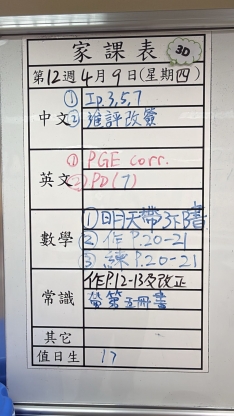 家課表
3D
第12週4月9日(星期四)
中文
① Ip.3,5,7
② 進評改簽
英文
① PGE corr.
② PD(7)
數學
①明天帶3下B書
② 作P.20-21
③ 練P.20-21
常識
作P.12-13及改正
帶第五冊書
其它
值日生
17